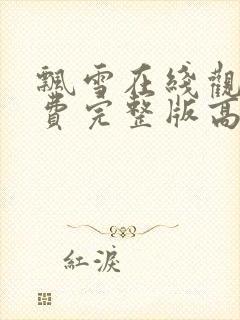 飄雪在綫觀
費完整版高
紅淚